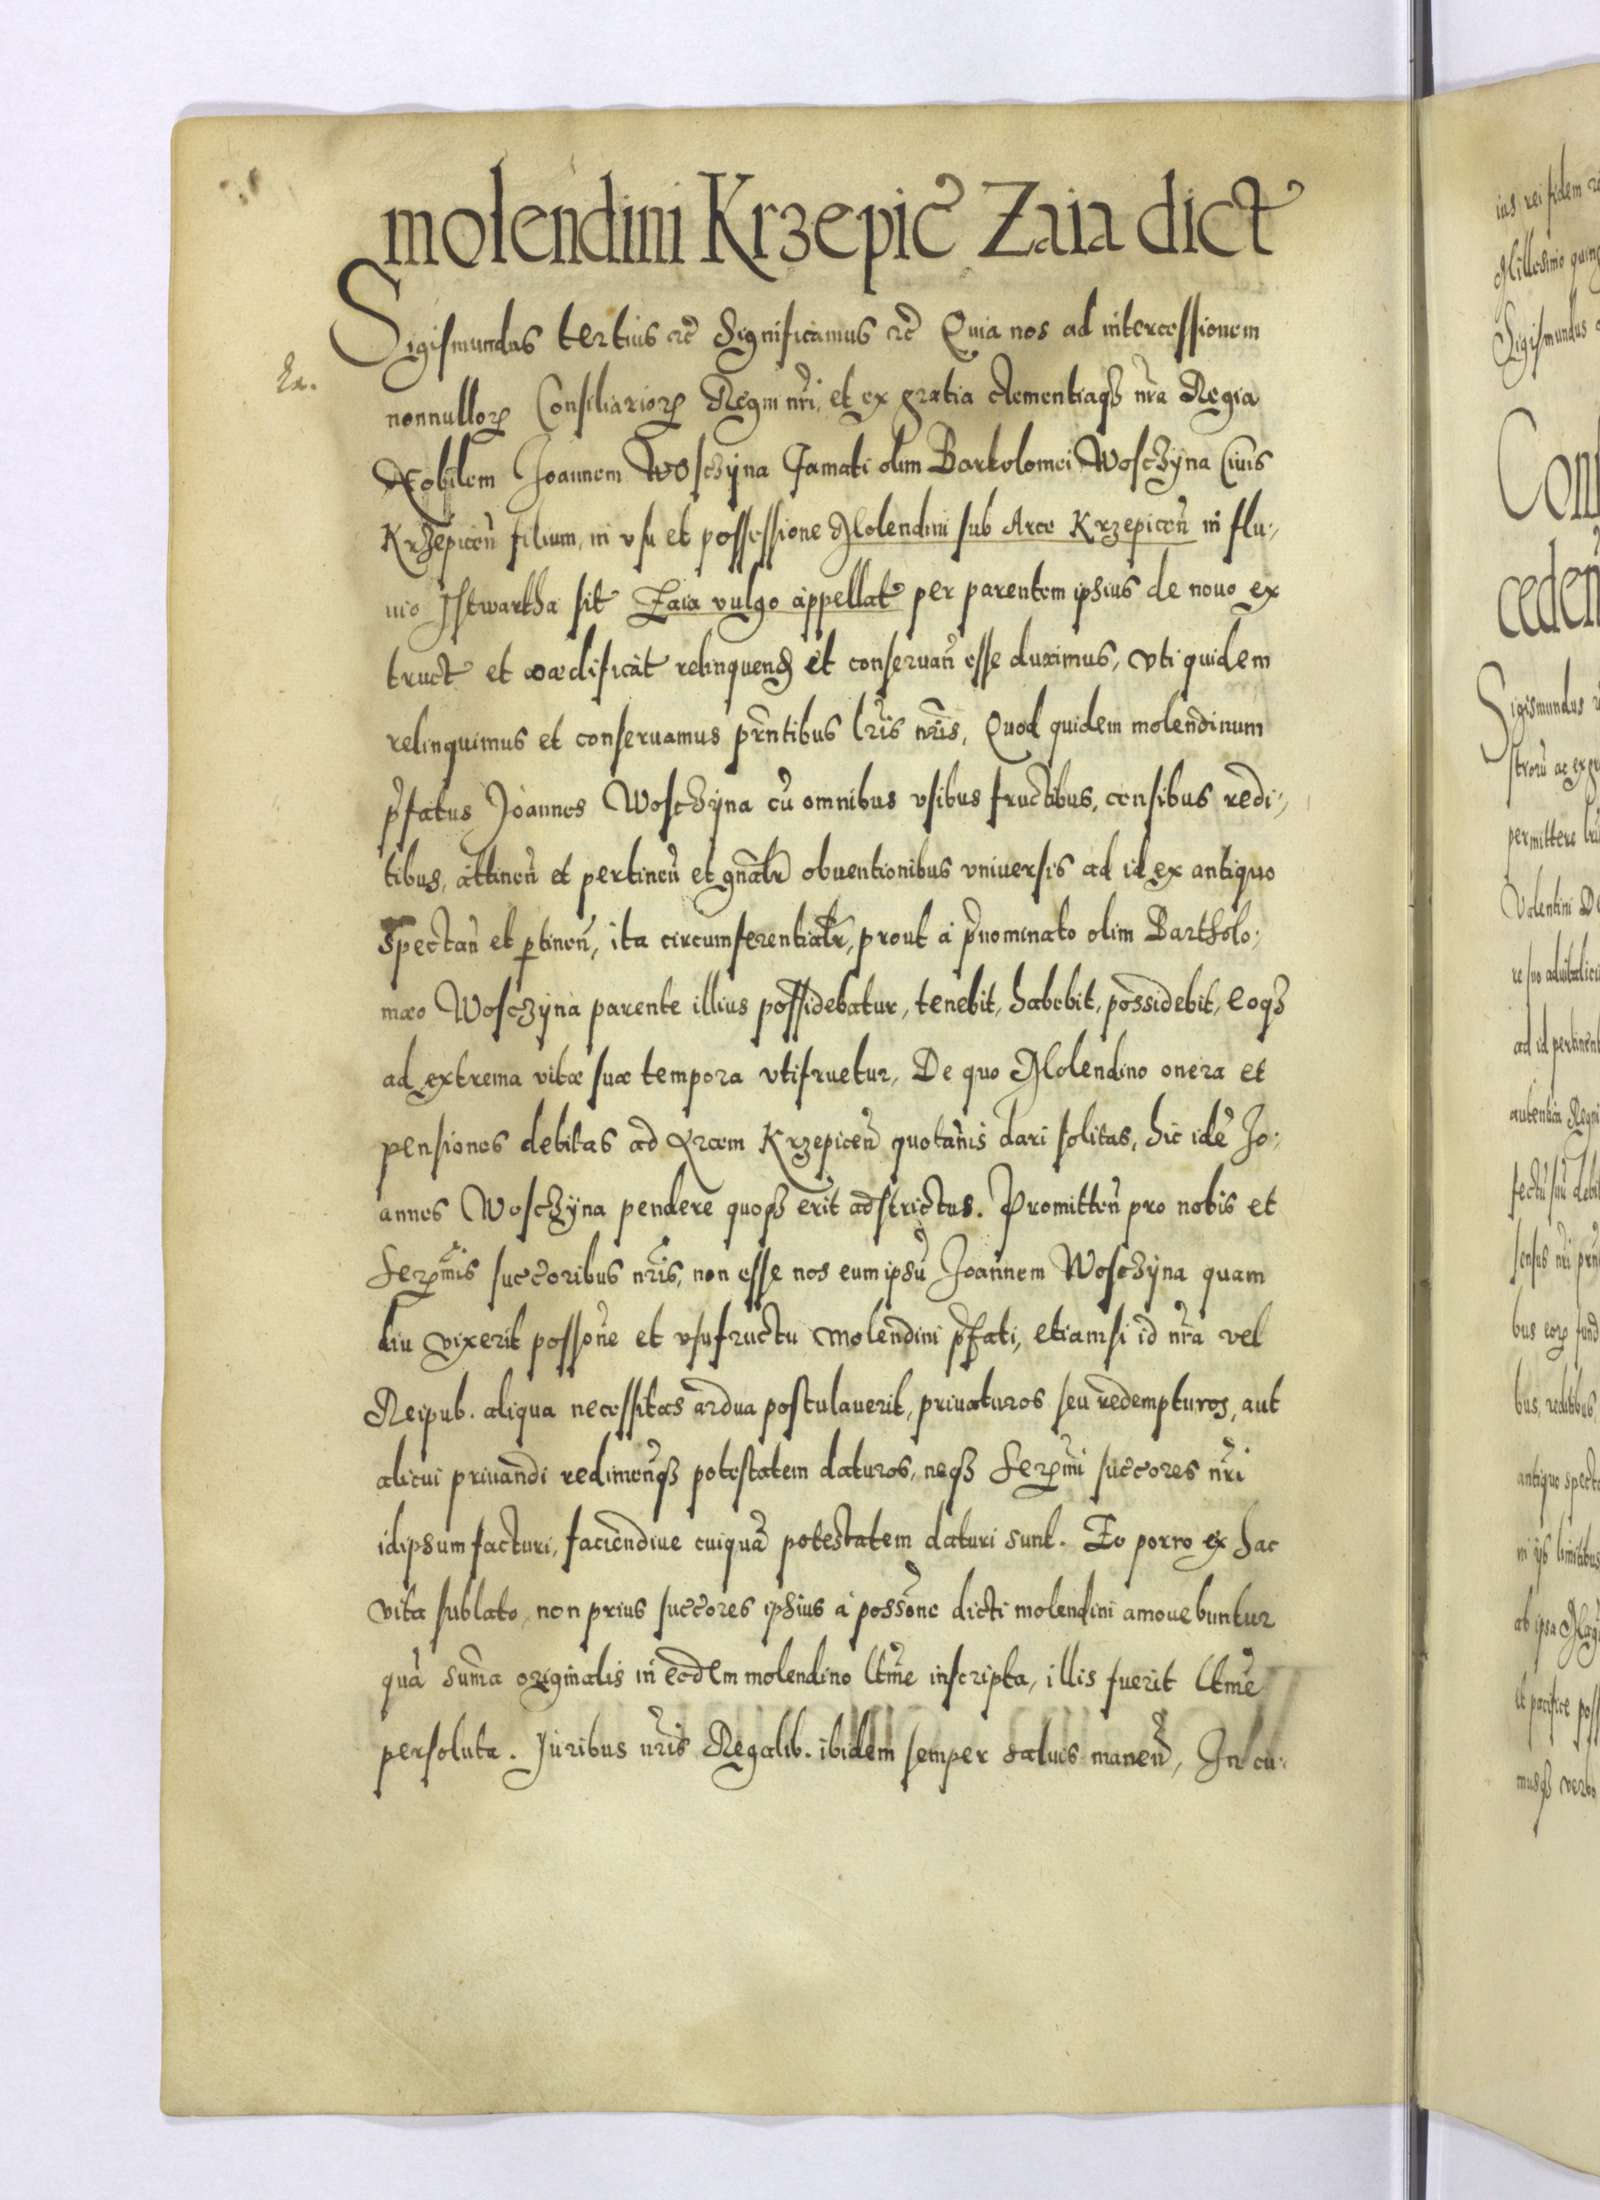 molendini Krzepic̃ Zaia dict
Sigismundus tertius etc̃ Significamus etc̃ Quia nos ad intercessionem
Ex.
nonnulloꝝ Consiliarioꝝ Regni nr̃i, et ex gratia clementiaqꝫ nr̃a Regia
Nobilem Joannem Woschÿna Famati olim Bartolomei Woschÿna Ciuis
Krzepiceñ filium, in vsu et possessione Molendini sub Arce Krzepiceñ in flu,
uio Istwartha sit Zaia vulgo appellat per parentem ipsius de nouo ex
truct et aedificat relinquend et conseruañ esse duximus, vti quidem
relinquimus et conseruamus pr̃ntibus lr̃is nr̃is, Quod quidem molendinum
p̃fatus Joannes Woschÿna cũ omnibus vsibus fructibus, censibus redi,
tibus, attineñ et pertineñ et gñalr̃ obuentionibus vniuersis ad id ex antiquo
Spectañ et ꝑtineñ, ita circumferentialr̃, prout a p̃nominato olim Bartholo,
maeo Woschÿna parente illius possidebatur, tenebit, habebit, possidebit, eoqꝫ
ad extrema vitae suae tempora vtifruetur, De quo Molendino onera et
pensiones debitas ad Arcem Krzepiceñ quotañis dari solitas, hic idẽ Jo,
annes Woschÿna pendere quoqꝫ erit adstrictus. Promitteñ pro nobis et
Serꝑmis succ̃oribus nr̃is, non esse nos eum ipsũ Joannem Woschÿna quam
diu vixerit possoñe et vsufructu molendini p̃fati, etiamsi id nr̃a vel
Reipub. aliqua necessitas ardua postulauerit, priuaturos seu redempturos, aut
alicui priuandi redimenđqꝫ potestatem daturos, neqꝫ Serꝑmi succ̃ores nr̃i
idipsum facturi, faciendiue cuiquã potestatem daturi sunt. Eo porro ex hac
vita sublato, non prius succ̃ores ipsius a possõne dicti molendini amouebuntur
quã sum̃a originalis in eodem molendino ltm̃e inscripta, illis fuerit ltm̃e
persoluta. Juribus nr̃is Regalib. ibidem semper saluis maneñ, In cu,